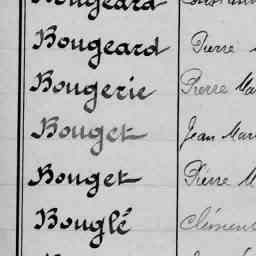 Bougeard
Bougeard Pierre
Bougerie Pierre Ma
Bouget Jean Mar
Bouget Pierre M
Bouglé Clément